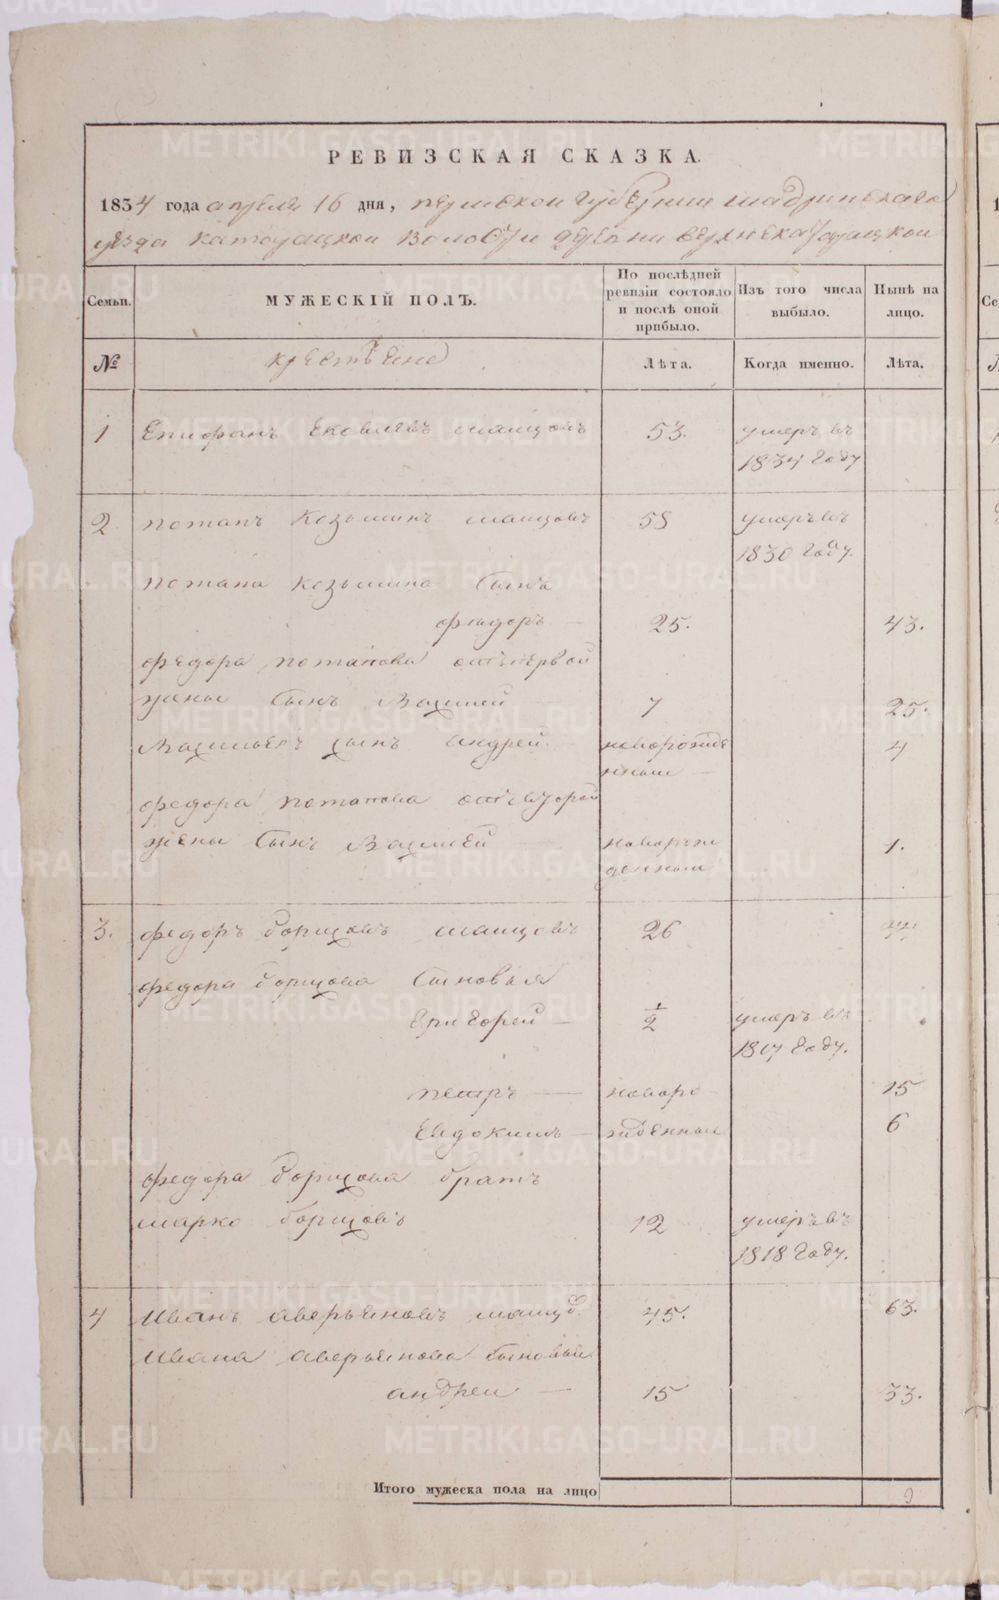 РЕВИЗСКАЯ СКАЗКА.
1834 года апреля 16 дня, пермской губернии шадринскаго
уезда катайцкой волости деревни верхнекатайцкой
Семьи. МУЖЕСКІЙ ПОЛЪ. По послѣдней ревизіи состояло и послѣ оной прибыло. Изъ того числа выбыло. Нынѣ на лицо.
№ крестьяне Лѣта. Когда именно. Лѣта.
1 Епифанъ Яковлевъ 53. умеръ въ
1834 году
2 потапъ Козьминъ 58 умеръ въ
1830 году.
потапа козьмина сынъ
фюдоръ 25. 43.
федора потапова отъ первой
жены сынъ Василей 7 25.
Василья сынъ андрей новорожде 4
нный
федора потапова отъ второй
жены сынъ Василей новорож 1.
денный
3. федоръ борисовъ 26
федора борисова сыновья
Григорей 1/2 умеръ въ
1817 году.
петръ новоро 15
Евдокимъ жденный 6
федора борисова братъ
марко борисовъ 12 умеръ въ
1818 году.
4 Иванъ аверьяновъ 45. 63.
Ивана аверьянова сыновья
андрей 15 33.
Итого мужеска пола на лицо 9
METRIKI.GASO-URAL.RU